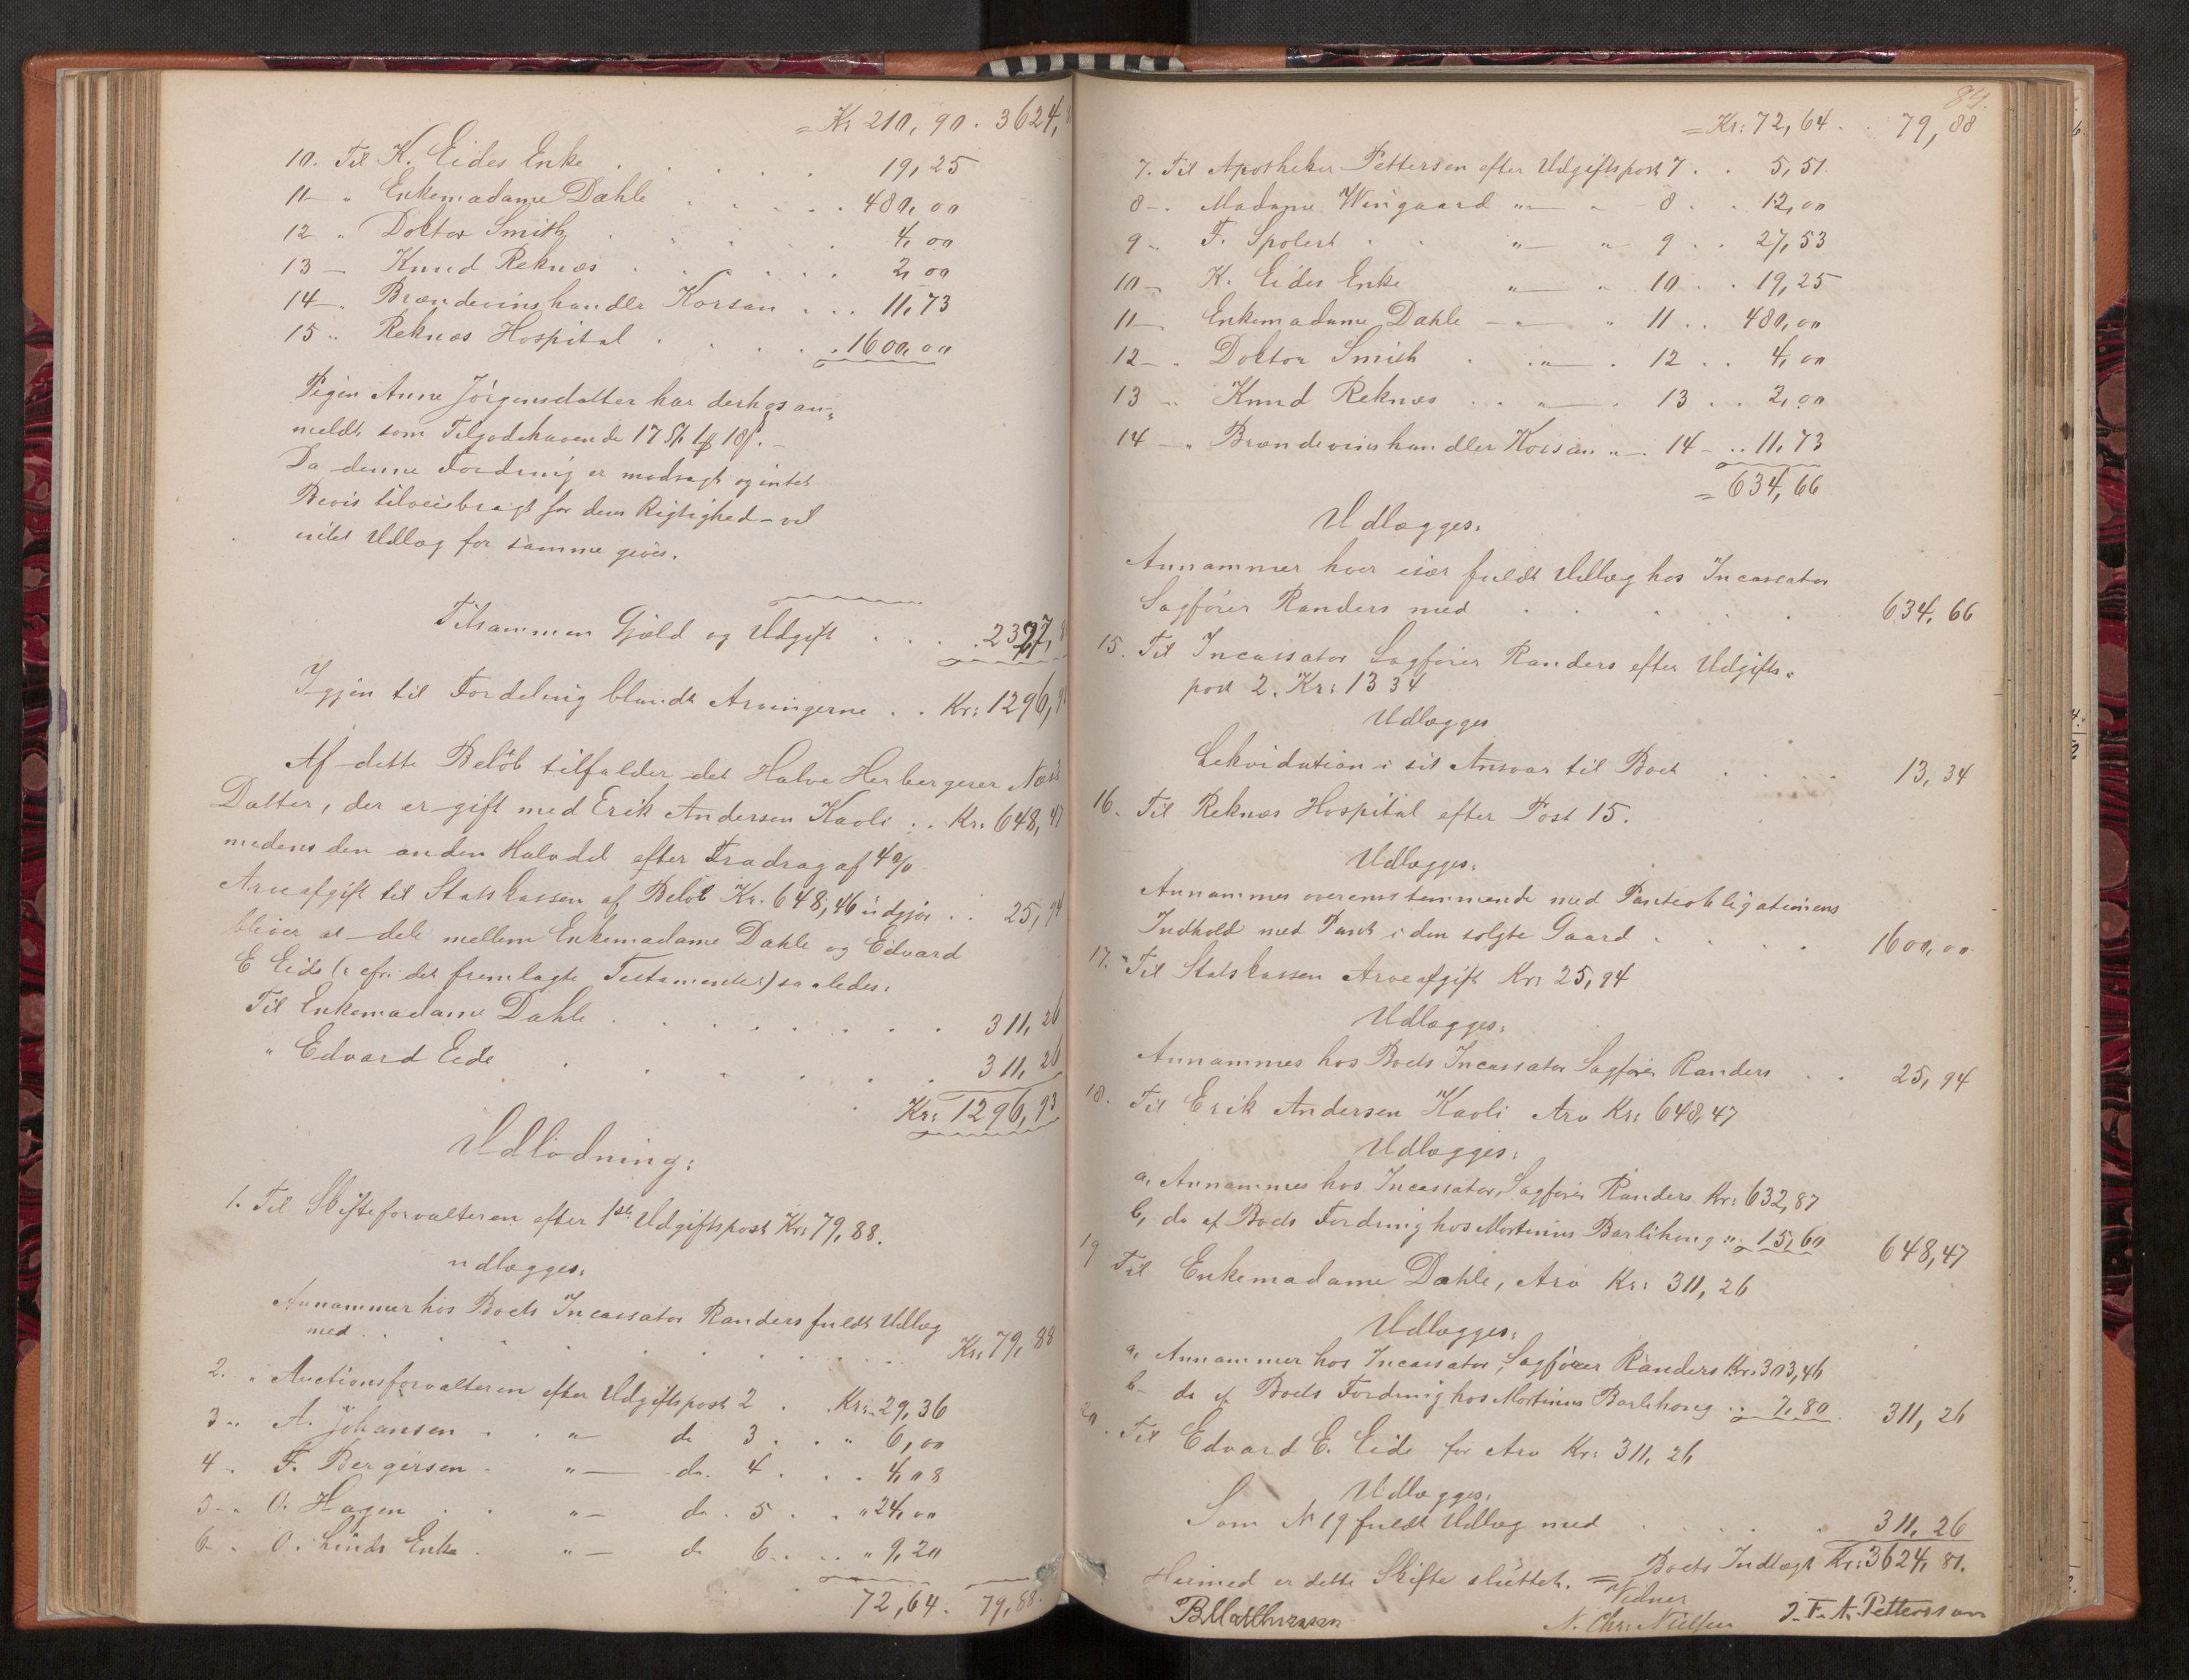 = Kr 210, 90. 3624,
10. Til K. Eides Enke . . . . . 19, 25
11 - " Enkemadame Dahle . . . . 480, 00
12 " Doktor Smith . . . . . 4, 00
13 - Knud Reknæs . . . . . . 2, 00
14 - Brændevinshandler Korsan . . . 11, 73
15 " Reknæs Hospital . . . . . 1600, 00
Pigen Anne Jörgensdatter har derhos an-
meldt som Tilgodehavende 17 Sp 1 18 s. -
Da denne Fordring er modsagt og intet
Bevis tilveiebragt for dens Rigtighed - vil
intet Udlæg for samme gives.
Tilsammen Gjæld og Udgift . . . . 2327,
Igjen til Fordeling blandt Arvingerne . . Kr: 1296,
Af dette Beløb tilfalder det Halve Herbergerer
Datter, der er gift med Erik Andersen Kavli . . Kr. 648, 47
medens den anden Halvdel efter Fradrag af 4 %
Arveafgift til Statskassen af Beløb Kr. 648, 46 udgjør . . 25, 94
bliver at dele mellem Enkemadame Dahle og Edvard
E Eide (cfr. det fremlagte Testamente) saaledes:
Til Enkemadame Dahle . . . . . . . 311, 26
" Edvard Eide . . . . . . . 311, 26
Kr: 1296, 93
Udlodning:
1. Til Skifteforvalteren efter 1ste Udgiftspost Kr: 79, 88.
udlægges:
Annammer hos Boets Incassator Randers fuldt Udlæg
med . . . . . . . . . Kr: 79, 88
2. " Auctionsforvalteren efter Udgiftspost 2 . Kr: 29, 36
3 " A. Johansen . . " - do 3 . . " 6, 00
4 - F. Bergersen - " - do. 4 . . . 4, 08
5 - " O. Hagen . . " - do . 5 . . " 24, 00
6 - . O. Linds Enke . " - do 6 . . . " 9, 20
72, 64. 79, 88.
84.
= Kr: 72, 64 . . 79, 88
7. Til Apotheker Pettersen efter Udgiftspost 7 . . 5, 51.
8 - . Madame Wingaard " - " - 8 . . 12, 00
9 " F. Spolert . . " - " - 9 . . 27, 53
10 - K. Eides Enke " - " 10 . . 19, 25
11 - Enkemadame Dahle - " - " 11 . . 480, 00
12 - . Doktor Smith . . " - . 12 . . 4, 00
13 " Knud Reknæs . . " - . 13 . . 2, 00
14 - " Brændevinshandler Korsan " - . 14 - . . 11, 73
= 634, 66
Udlægges:
Annammer hver især fuldt Udlæg hos Incassator
Sagfører Randers med . . . . . . 634, 66
15. Til Incassator Sagfører Randers efter Udgifts-
post 2. Kr: 13 34
Udlægges
Lekvidation i sit Ansvar til Boet . . . . . 13, 34
16. Til Reknæs Hospital efter Post 15.
Udlægges:
Annammes overensstemmende med Panteobligationens
Indhold med Pant i den solgte Gaard . . . . 1600, 00
17. Til Statskassen Arveafgift Kr: 25, 94
Udlægges:
Annammes hos Boets Incassator Sagfører Randers . . 25, 94
18. Til Erik Andersen Kavli Arv Kr: 648, 47
Udlægges:
a, Annammes hos Incassator, Sagfører Randers Kr: 632, 87
b, do af Boets Fordring hos Mortinus Barlihoug " 15, 60 648, 47
19 Til Enkemadame Dahle, Arv Kr: 311, 26
Udlægges:
a, Annammer hos Incassator, Sagfører Randers Kr. 303, 46
b - do af Boets Fordring hos Mortinus Barlihoug . . 7, 80 . 311, 26
20. Til Edvard E. Eide for Arv Kr: 311, 26
Udlægges:
Som N 19 fuldt Udlæg med . . . . . 311, 26
= Boets Indtægt Kr: 3624, 81.
Hermed er dette Skifte sluttet.
Vidner
N. Chr. Nielsen J. F. A. Petterssom